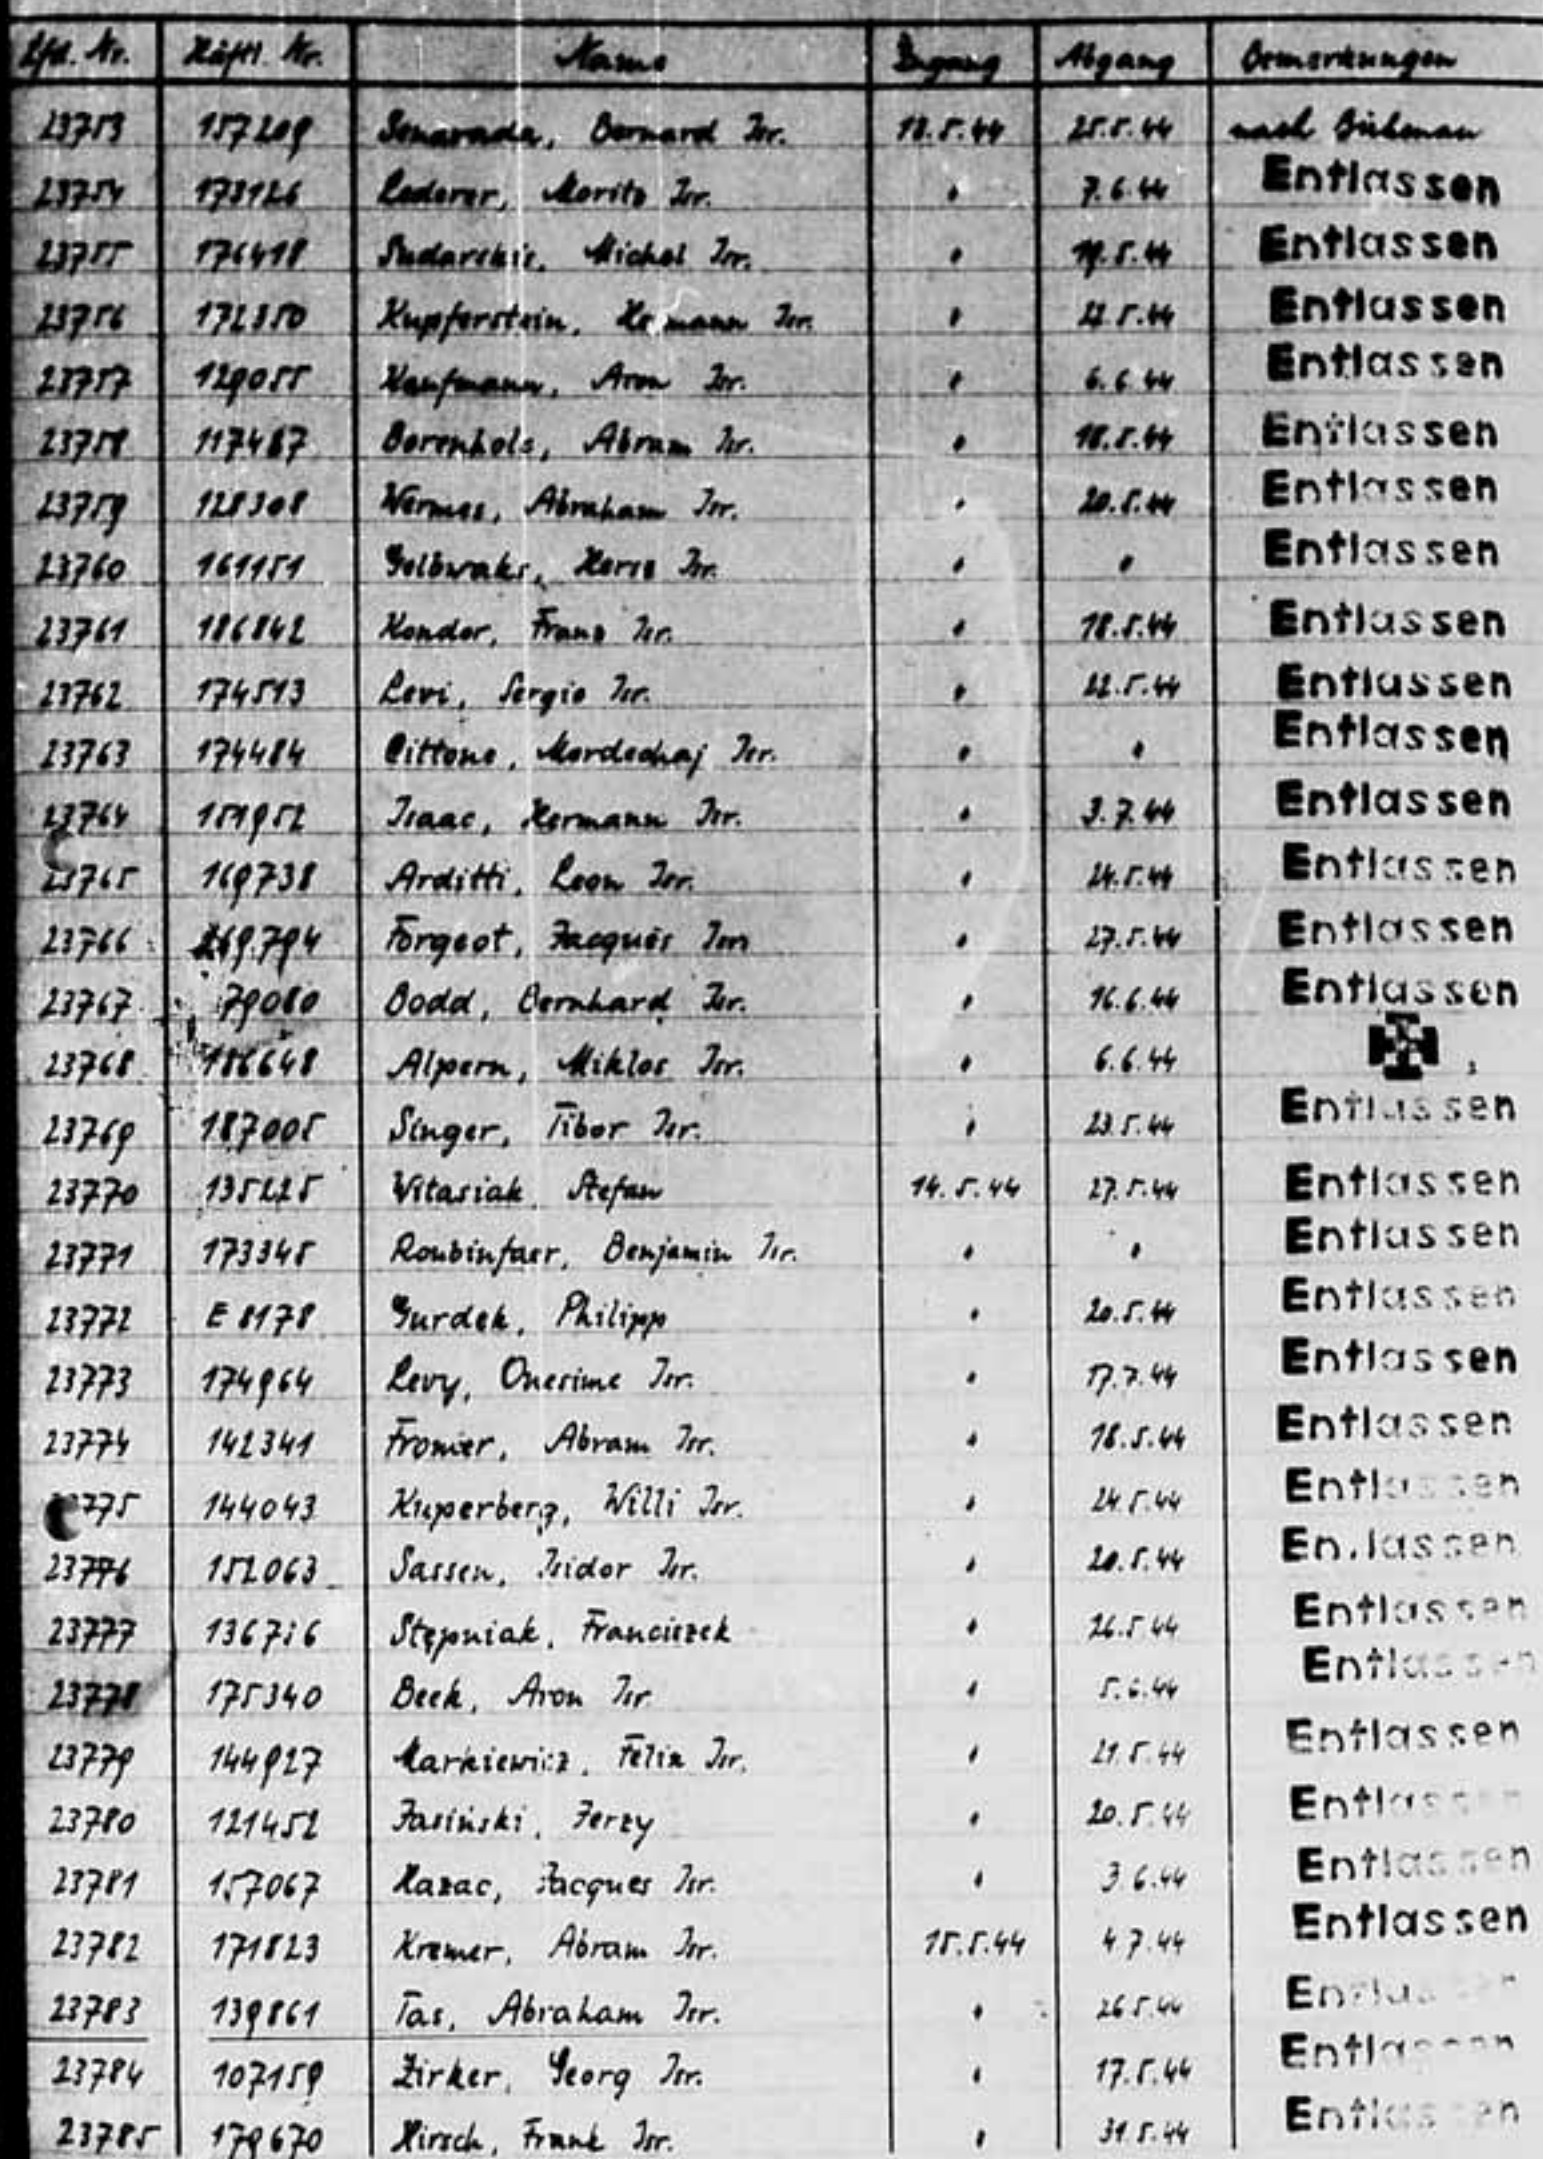 Lfd. Nr. Häftl. Nr. Name Zugang Abgang Bemerkungen
23753 157209 Bernard Isr. 25.5.44 nach Birkenau
23754 173126 Lederer, Moritz Isr. " 7.6.44 Entlassen
23755 176418 Sudarskis, Michel Isr. " 19.5.44 Entlassen
23756 172350 Kupferstein, Isr. " 22.5.44 Entlassen
23757 129055 Kaufmann, Aron Isr. " 6.6.44 Entlassen
23758 117467 Borenhols, Abram Isr. " 18.5.44 Entlassen
23759 128308 Wermes, Abraham Isr. " 20.5.44 Entlassen
23760 161151 Gelbwaks, Hersz Isr. " " Entlassen
23761 186842 Kondor, Franz Isr. " 18.5.44 Entlassen
23762 174513 Levi, Sergio Isr. " 22.5.44 Entlassen
23763 174484 Cittone, Mordechaj Isr. " " Entlassen
23764 151952 Isaac, Hermann Isr. " 3.7.44 Entlassen
23765 169738 Arditti, Leon Isr. " 24.5.44 Entlassen
23766 169794 Forgeot, Jacques Isr. " 27.5.44 Entlassen
23767 79080 Dodd, Bernhard Isr. " 16.6.44 Entlassen
23768 186648 Alpern, Miklos Isr. " 6.6.44
23769 187005 Singer, Tibor Isr. " 23.5.44 Entlassen
23770 135225 Witasiak, Stefan 14.5.44 27.5.44 Entlassen
23771 173345 Roubinfaer, Benjamin Isr. " " Entlassen
23772 E 8178 Gurdek, Philipp " 20.5.44 Entlassen
23773 174964 Levy, Onesime Isr. " 17.7.44 Entlassen
23774 142341 Fromer, Abram Isr. " 18.5.44 Entlassen
23775 144043 Kuperberg, Willi Isr. " 24.5.44 Entlassen
23776 152063 Sassen, Isidor Isr. " 20.5.44 Entlassen
23777 136716 Stępniak, Franciszek " 26.5.44 Entlassen
23778 175340 Beek, Aron Isr. " 5.6.44 Entlassen
23779 144927 Markiewicz, Felix Isr. " 21.5.44 Entlassen
23780 121452 Jasiński, Jerzy " 20.5.44 Entlassen
23781 157067 Kazac, Jacques Isr. " 3.6.44 Entlassen
23782 171823 Kremer, Abram Isr. 15.5.44 4.7.44 Entlassen
23783 139861 Tas, Abraham Isr. " 26.5.44 Entlassen
23784 107159 Zirker, Georg Isr. " 17.5.44 Entlassen
23785 179670 Hirsch, Frank Isr. " 31.5.44 Entlassen